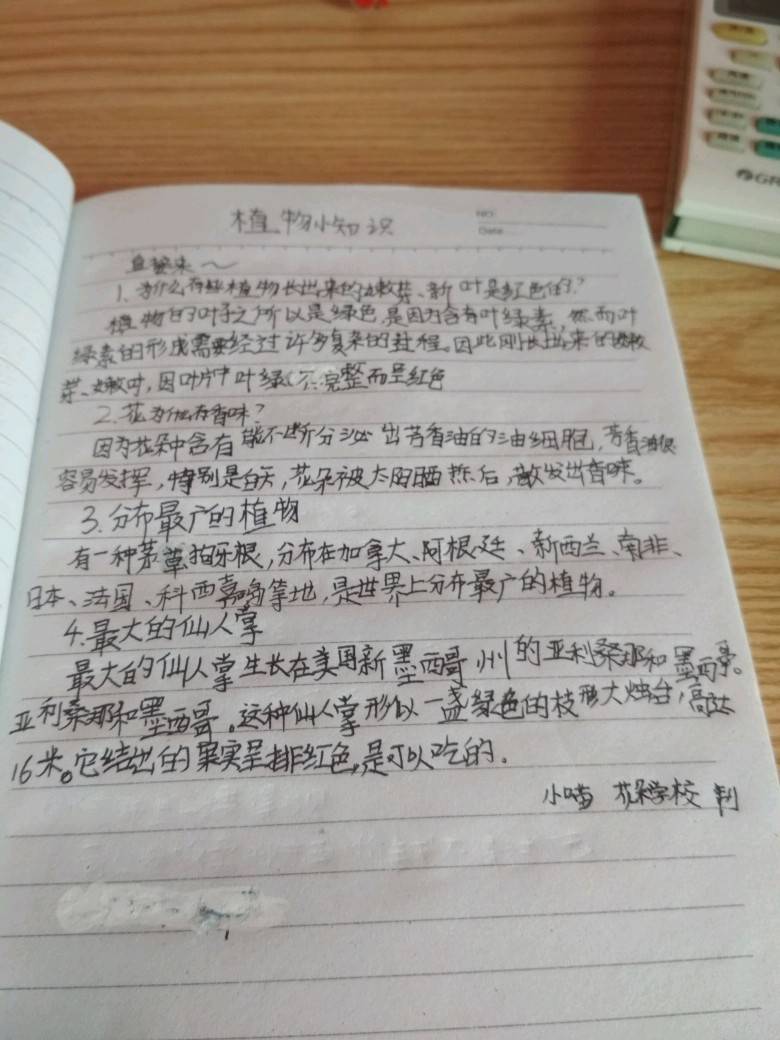 植物小知识
NO.
Date.
1. 为什么有些植物长出来的嫩芽、新叶是红色的?
植物的叶子之所以是绿色是因为含有叶绿素,然而叶
绿素的形成需要经过许多复杂的过程。因此刚长出来的嫩
芽、嫩叶,因叶片中叶绿 不完整而呈红色
2. 花为什么有香味?
因为花朵中含有能不断分泌出芳香油的油细胞,芳香油很
容易发挥,特别是白天,花朵被太阳晒热后,散发出香味。
3. 分布最广的植物
有一种茅草狗牙根,分布在加拿大、阿根廷、新西兰、南非、
日本、法国、科西嘉岛等地,是世界上分布最广的植物。
4. 最大的仙人掌
最大的仙人掌生长在美国新墨西哥州的亚利桑那和墨西哥。
亚利桑那和墨西哥。这种仙人掌形似一盏绿色的枝形大烛台,高达
16米。它结出的果实呈排红色,是可以吃的。
花朵学校 制